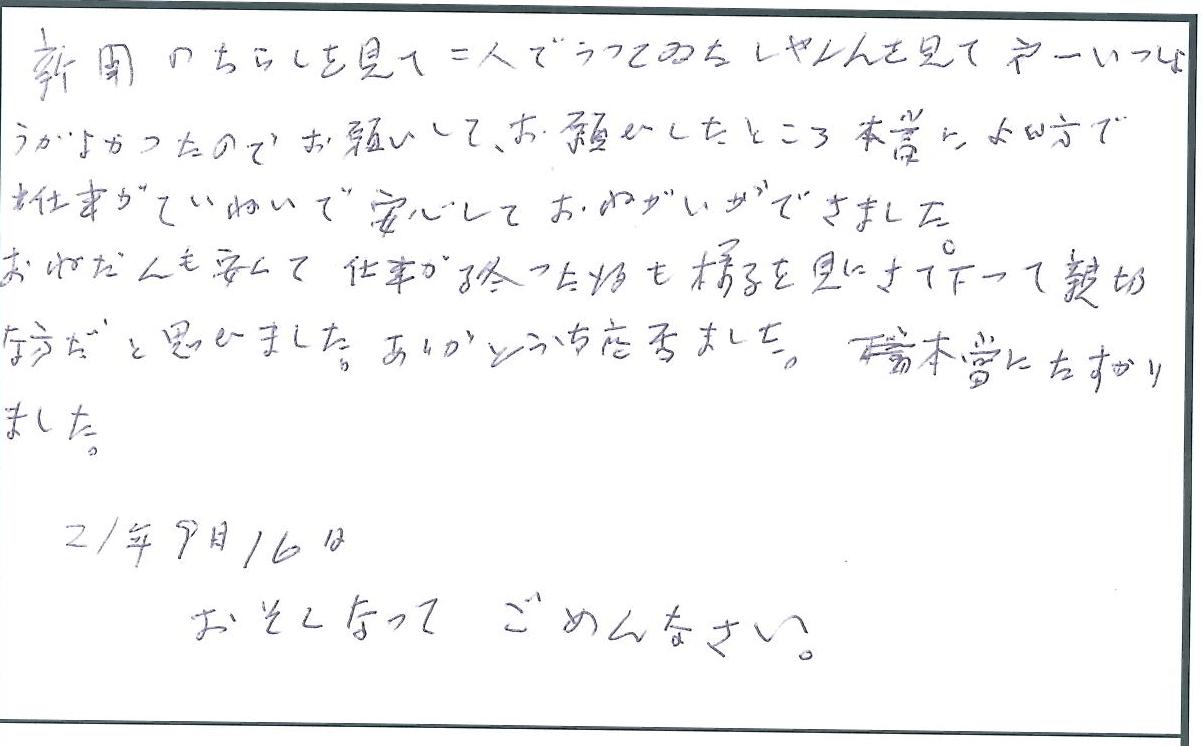 新聞のちらしを見て二人でうつてゐたしやしんを見て㐧一いつしよ
うがよかつたのでお願いして、お願ひしたところ本當によい方で
お仕事がていねいで安心しておねがいができました。
おねだんも安くて仕事が終つた後も様子を見にきて下つて親切
な方だと思ひました。ありがとうち座居ました。本當にたすかり
ました。
21年9月16日
おそくなって ごめんなさい。